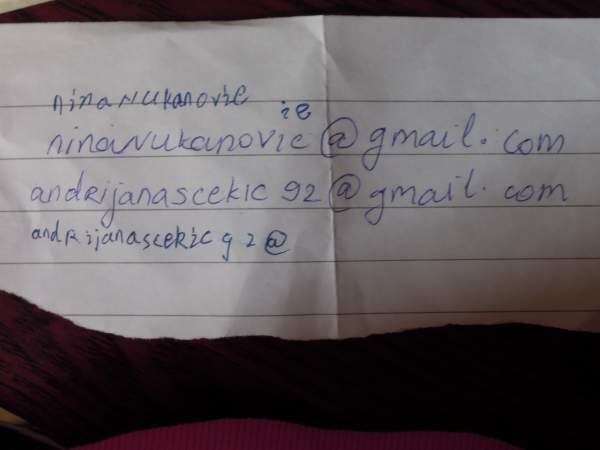 ninaNukanović
ic
ninaNukanovic@gmail.com
andRijanascekic92@gmail.com
andRijanascekic92@